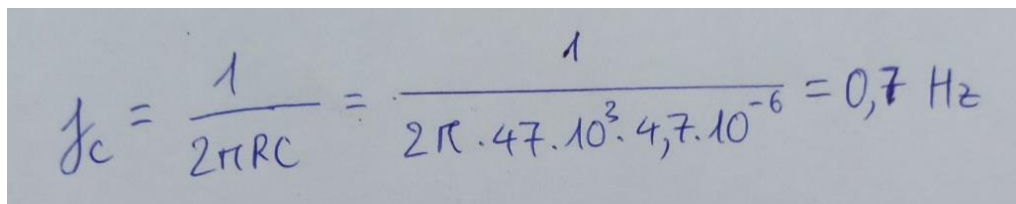 f_c = 1/(2πRC) = 1/(2π · 47 · 10³ · 4,7 · 10⁻⁶) = 0,7 Hz